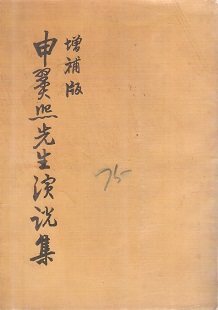 增補版
申翼熙先生演説集
75